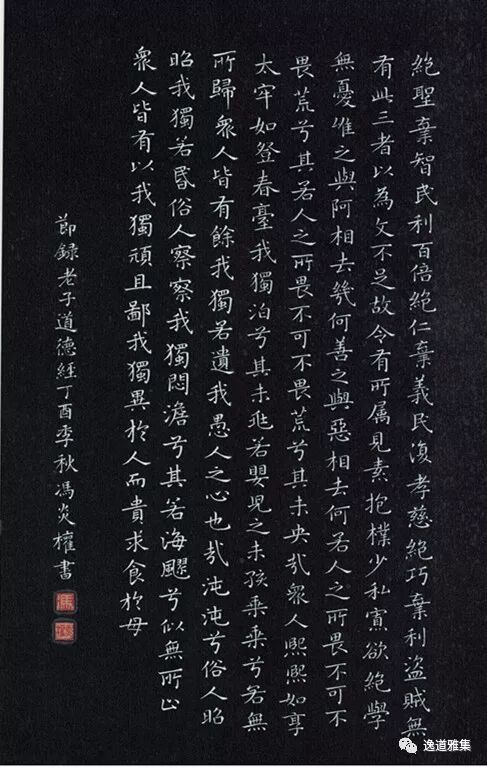 絕聖棄智民利百倍絕仁棄義民復孝慈絕巧棄利盜賊無
有此三者以為文不足故令有所属見素抱樸少私寡欲絕學
無憂唯之與阿相去幾何善之與惡相去何若人之所畏不可不
畏荒兮其若人之所畏不可不畏荒兮其未央哉衆人熙熙如享
太牢如登春臺我獨泊兮其未兆若嬰兒之未孩乘乘兮若無
所歸衆人皆有餘我獨若遺我愚人之心也哉沌沌兮俗人昭
昭我獨若昏俗人察察我獨悶澹兮其若海飂兮似無所止
衆人皆有以我獨頑且鄙我獨異於人而貴求食於母
節録老子道德經丁酉季秋馮炎權書
逸道雅集